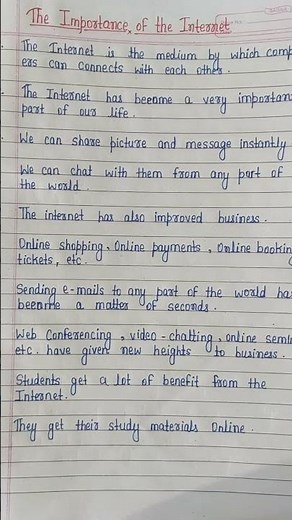 The Importance of the Internet
The Internet is the medium by which comp
ers can connects with each other.
The Internet has become a very importan
part of our life.
We can share picture and message instantly
We can chat with them from any part of
the world.
The internet has also improved business.
Online shopping, Online payments, Online bookin
tickets, etc.
Sending e-mails to any part of the world ha
become a matter of seconds.
Web Conferencing, video-chatting, online semi
etc. have given new heights to business.
Students get a lot of benefit from the
Internet.
They get their study materials Online.